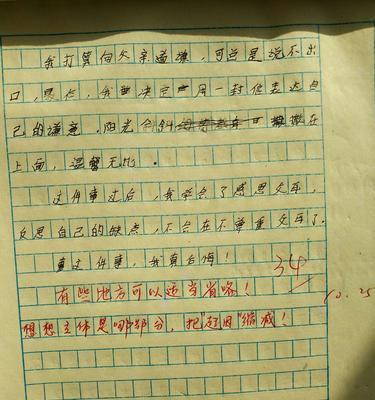 我打算向父亲道歉，可总是说不出
口，最后，我决定用一封信表达自
己的谦意，阳光斜斜 撒在
上面，温馨无比。
这件事过后，我学会了感恩父母，
反思自己的缺点，不会在不尊重父母了。
这件事，我真后悔！
34
有些地方可以适当省略！
10.25
想想主体是哪部分，把"起因"缩减！